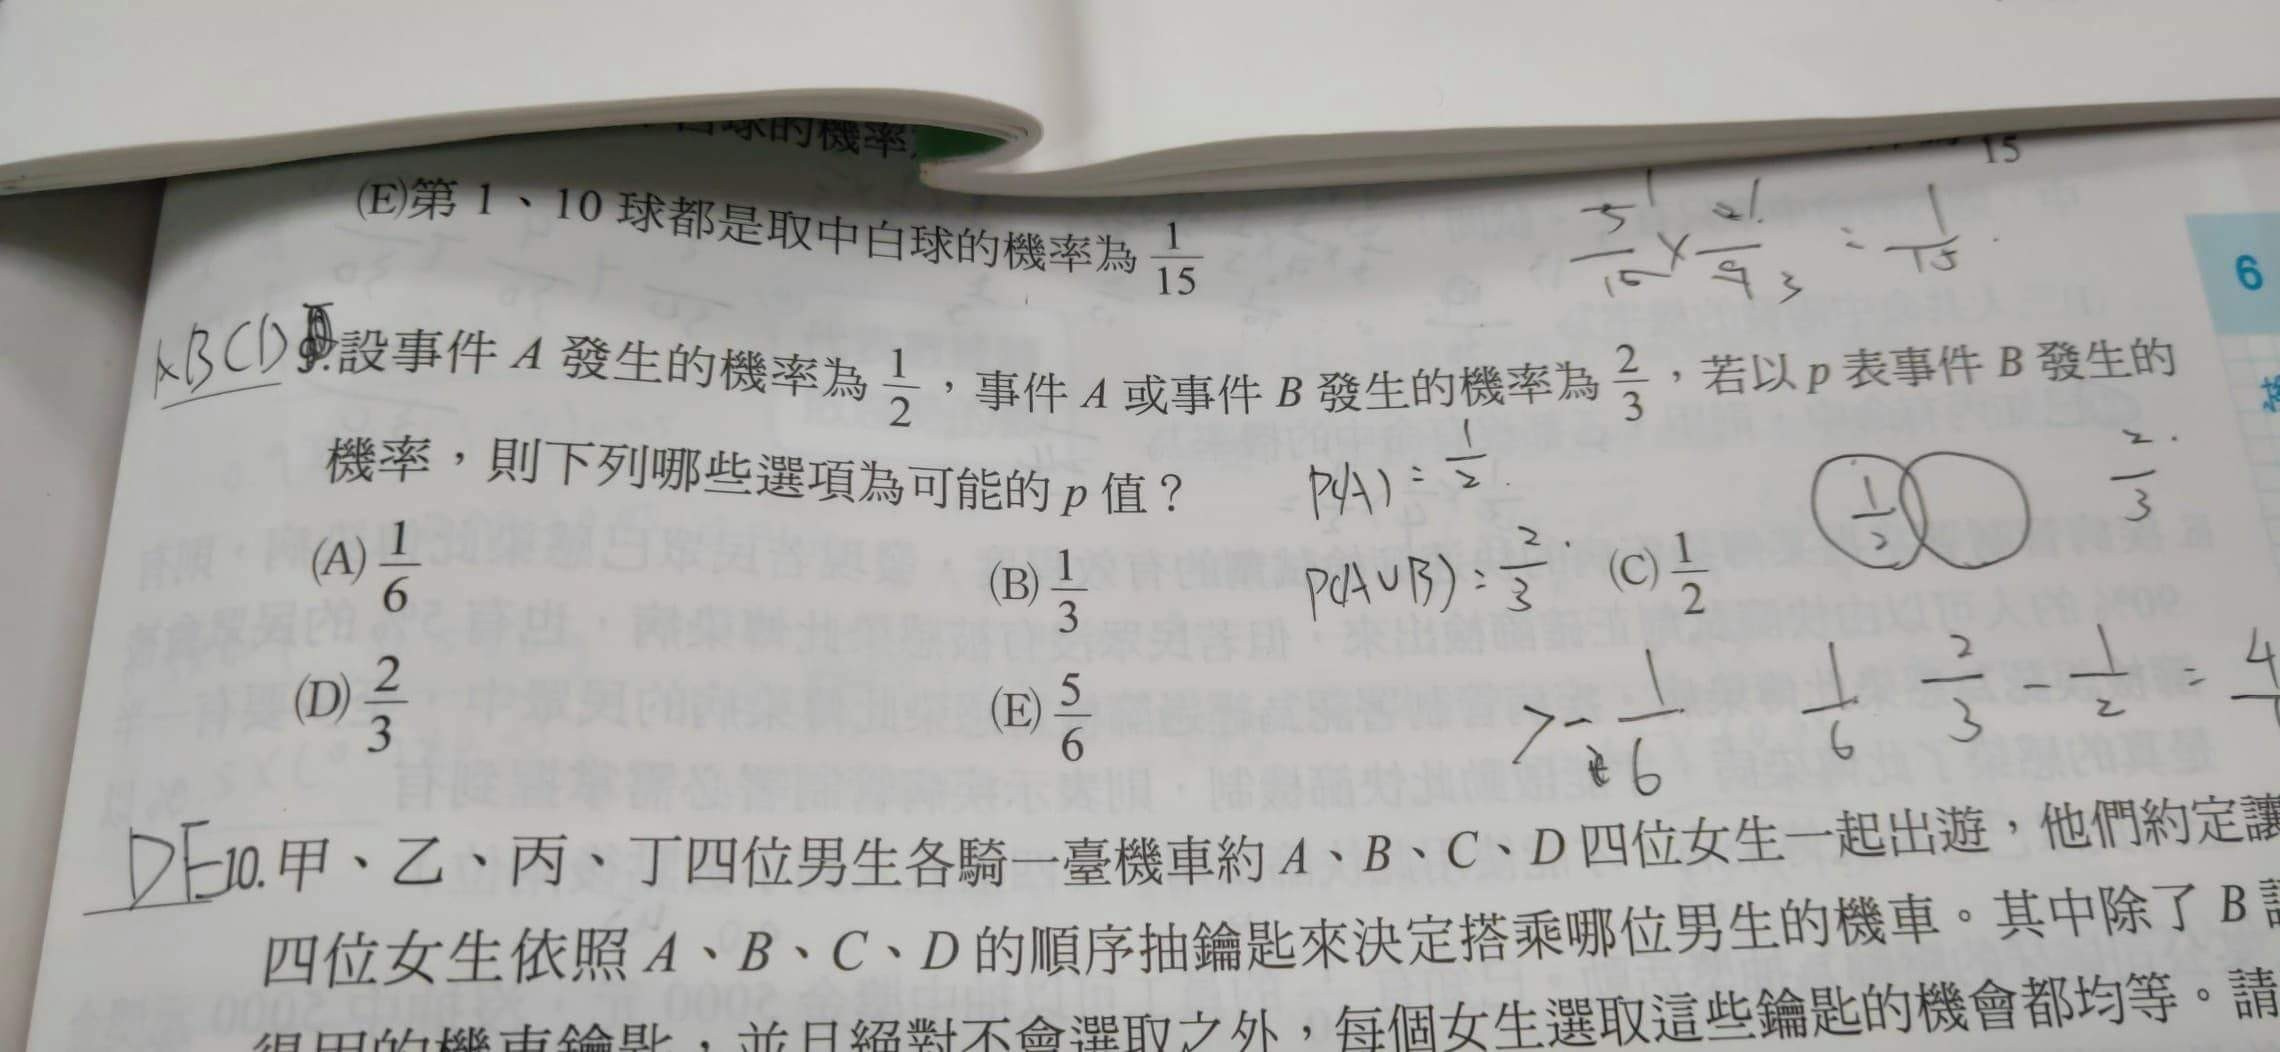 白球的機率
15
(E)第 1、10 球都是取中白球的機率為 1/15
5/15 × 2/9 3 = 1/15
6
ABCD 9.設事件 A 發生的機率為 1/2，事件 A 或事件 B 發生的機率為 2/3，若以 p 表事件 B 發生的
機率，則下列哪些選項為可能的 p 值？
P(A) = 1/2
1/2
2/3
(A) 1/6 (B) 1/3 (C) 1/2
P(A∪B) = 2/3
(D) 2/3 (E) 5/6
1/6 1/6 2/3 - 1/2 = 4
DE 10.甲、乙、丙、丁四位男生各騎一臺機車約 A、B、C、D 四位女生一起出遊，他們約定讓
四位女生依照 A、B、C、D 的順序抽鑰匙來決定搭乘哪位男生的機車。其中除了 B
的機車鑰匙，並且絕對不會選取之外，每個女生選取這些鑰匙的機會都均等。請